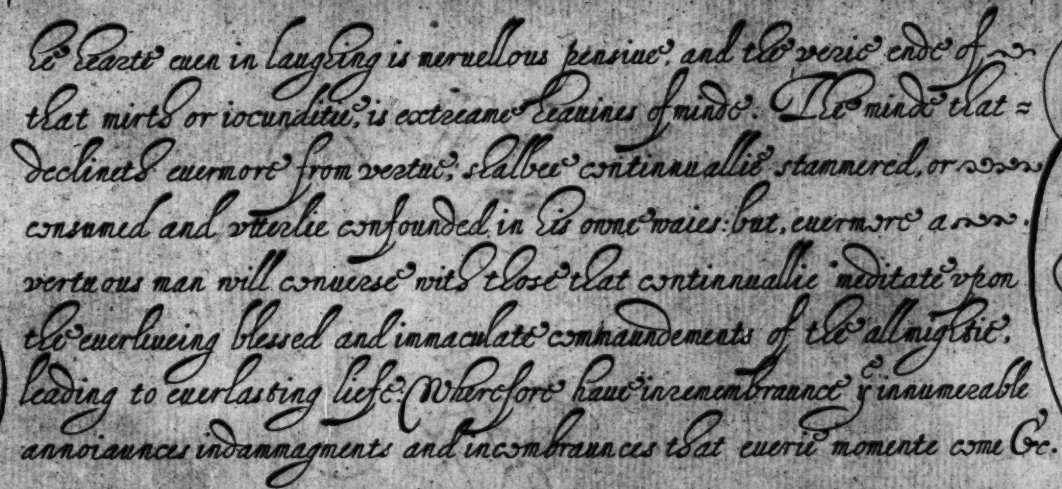 he hearte euen in laughing is meruellous pensiue, and the verie ende of
that mirth or iocunditie, is extreame heauines of minde. The minde that =
declineth euermore from vertue, shalbee continnuallie stammered, or
consumed and vtterlie confounded in his owne waies: but, euermore a
vertuous man will conuerse with those that continnuallie meditate vpon
the euerliueing blessed and immaculate commaundements of the allmightie,
leading to euerlasting liefe: Wherefore haue in remembraunce yͤ innumerable
annoiaunces indammagments and incombraunces that euerie momente come &c.